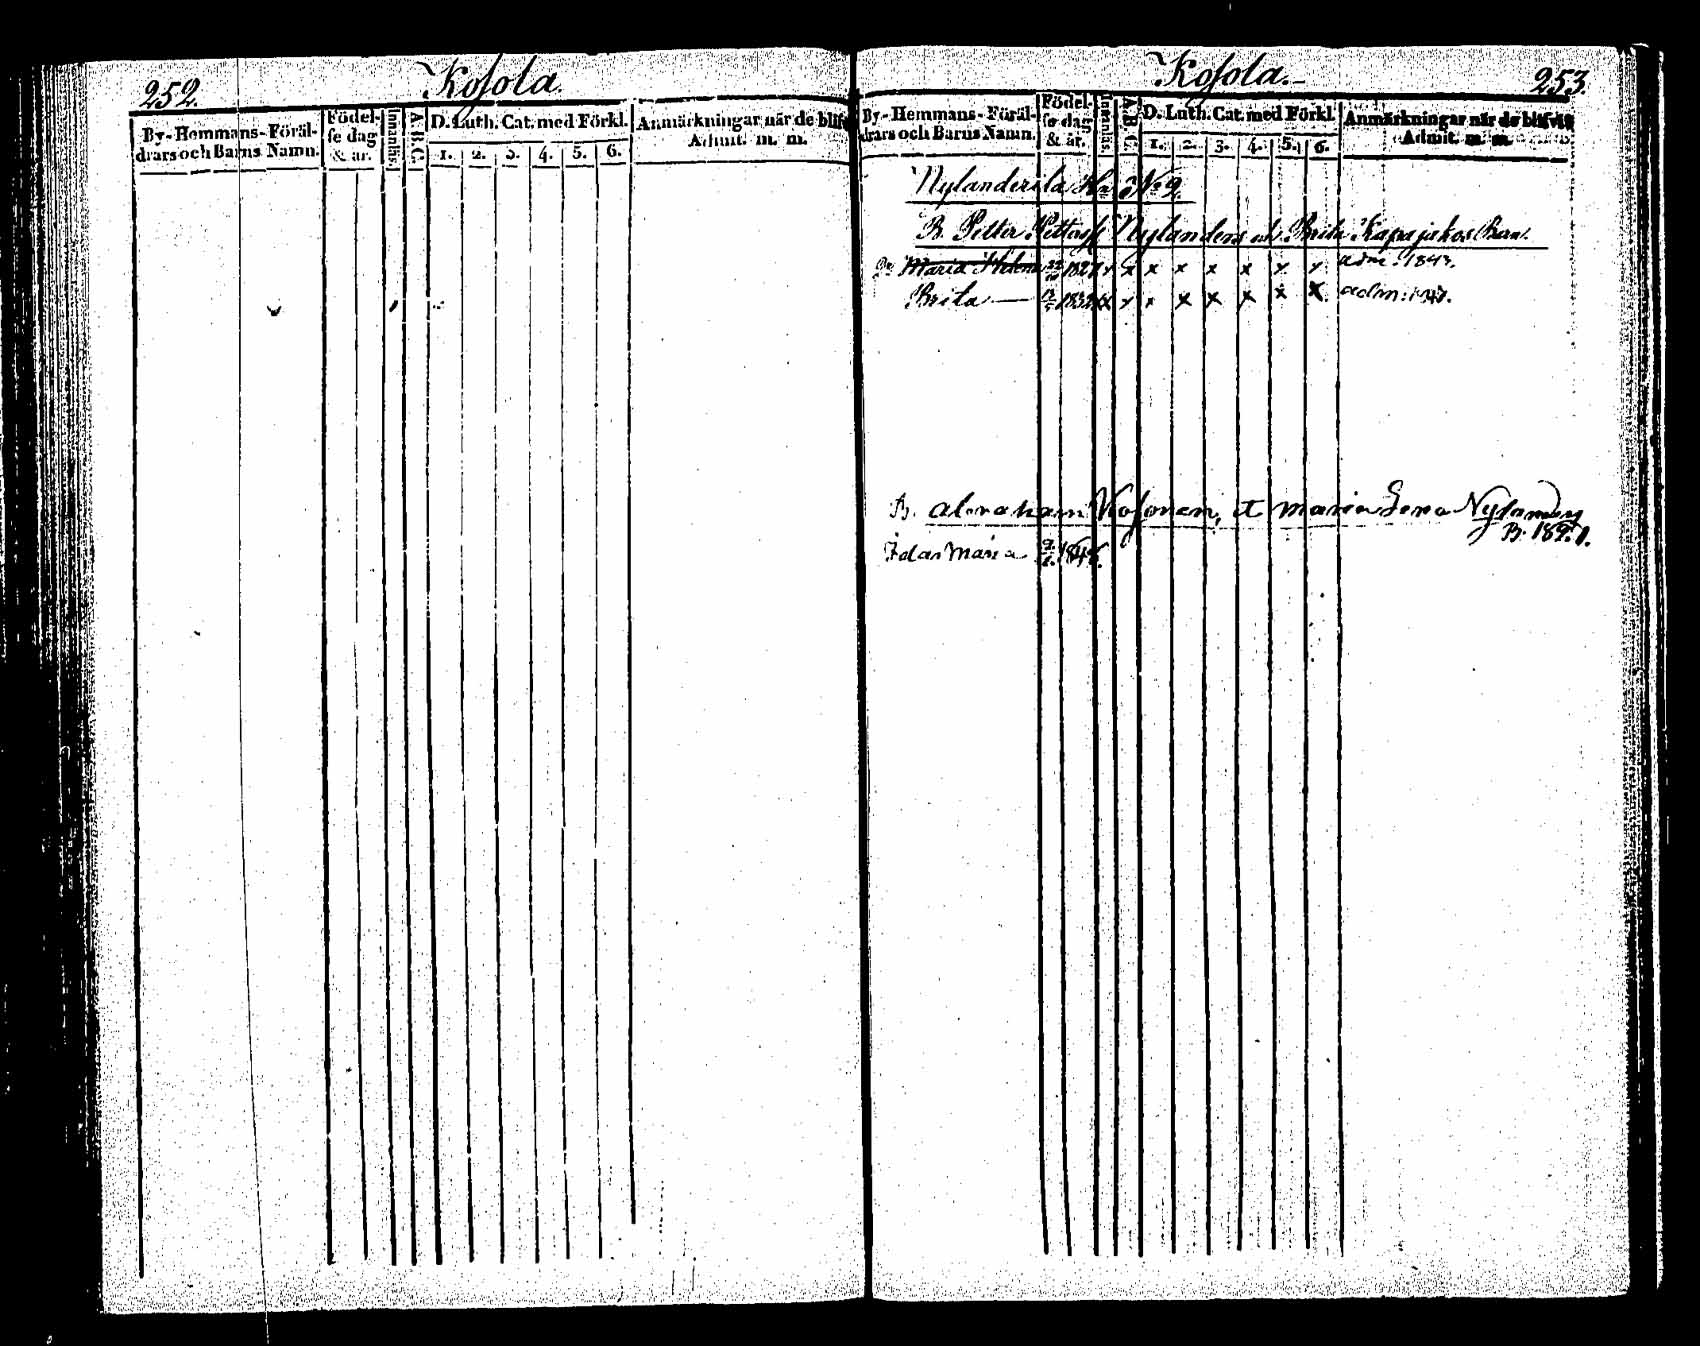 252.
Kosola
By-Hemmans-Föräl-
drars och Barns Namn.
Födel-
se dag
& år.
Innanläs.
A.B.C.
D. Luth. Cat. med Förkl.
1. 2. 3. 4. 5. 6.
Anmärkningar när de blifv
Admit. m. m.
Kosola.
253.
By-Hemmans-Föräl-
drars och Barns Namn.
Födel-
se dag
& år.
Innanläs.
A.B.C.
D. Luth. Cat. med Förkl.
1. 2. 3. 4. 5. 6.
Anmärkningar när de blifvit
Admit. m. m.
Nylanderila No 9.
B. Petter Nylanders Brita Kapajakos Barn.
Maria Helena 1827 x x x x x x x x adm: 1843.
Brita 1832 x x x x x x x x adm: 1847.
B. Abraham Kosonen, et Maria Lena
Idas Maria